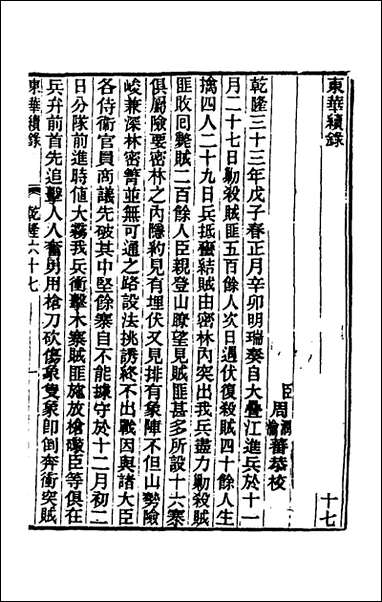 東華續錄
十七
臣周潤蕃恭校
乾隆三十三年戊子春正月辛卯明瑞奏自大疊江進兵於十一
月二十七日勦殺賊匪五百餘人次日遇伏復殺賊四十餘人生
擒四人二十九日兵抵蠻結賊由密林內突出我兵盡力勦殺賊
匪敗回斃賊二百餘人臣親登山瞭望見賊匪甚多所設十六寨
俱屬險要密林之內隱約見有埋伏又見排有象陣不但山勢險
峻兼深林密箐並無可通之路設法挑誘終不出戰因與諸大臣
各侍衛官員商議先破其中堅餘寨自不能據守於十二月初二
日分隊前進時值大霧我兵衝擊木寨賊匪施放槍礮臣等俱在
兵弁前首先追擊人人奮勇用槍刀砍傷象隻象即倒奔衝突賊
東華續錄
乾隆六十七
一